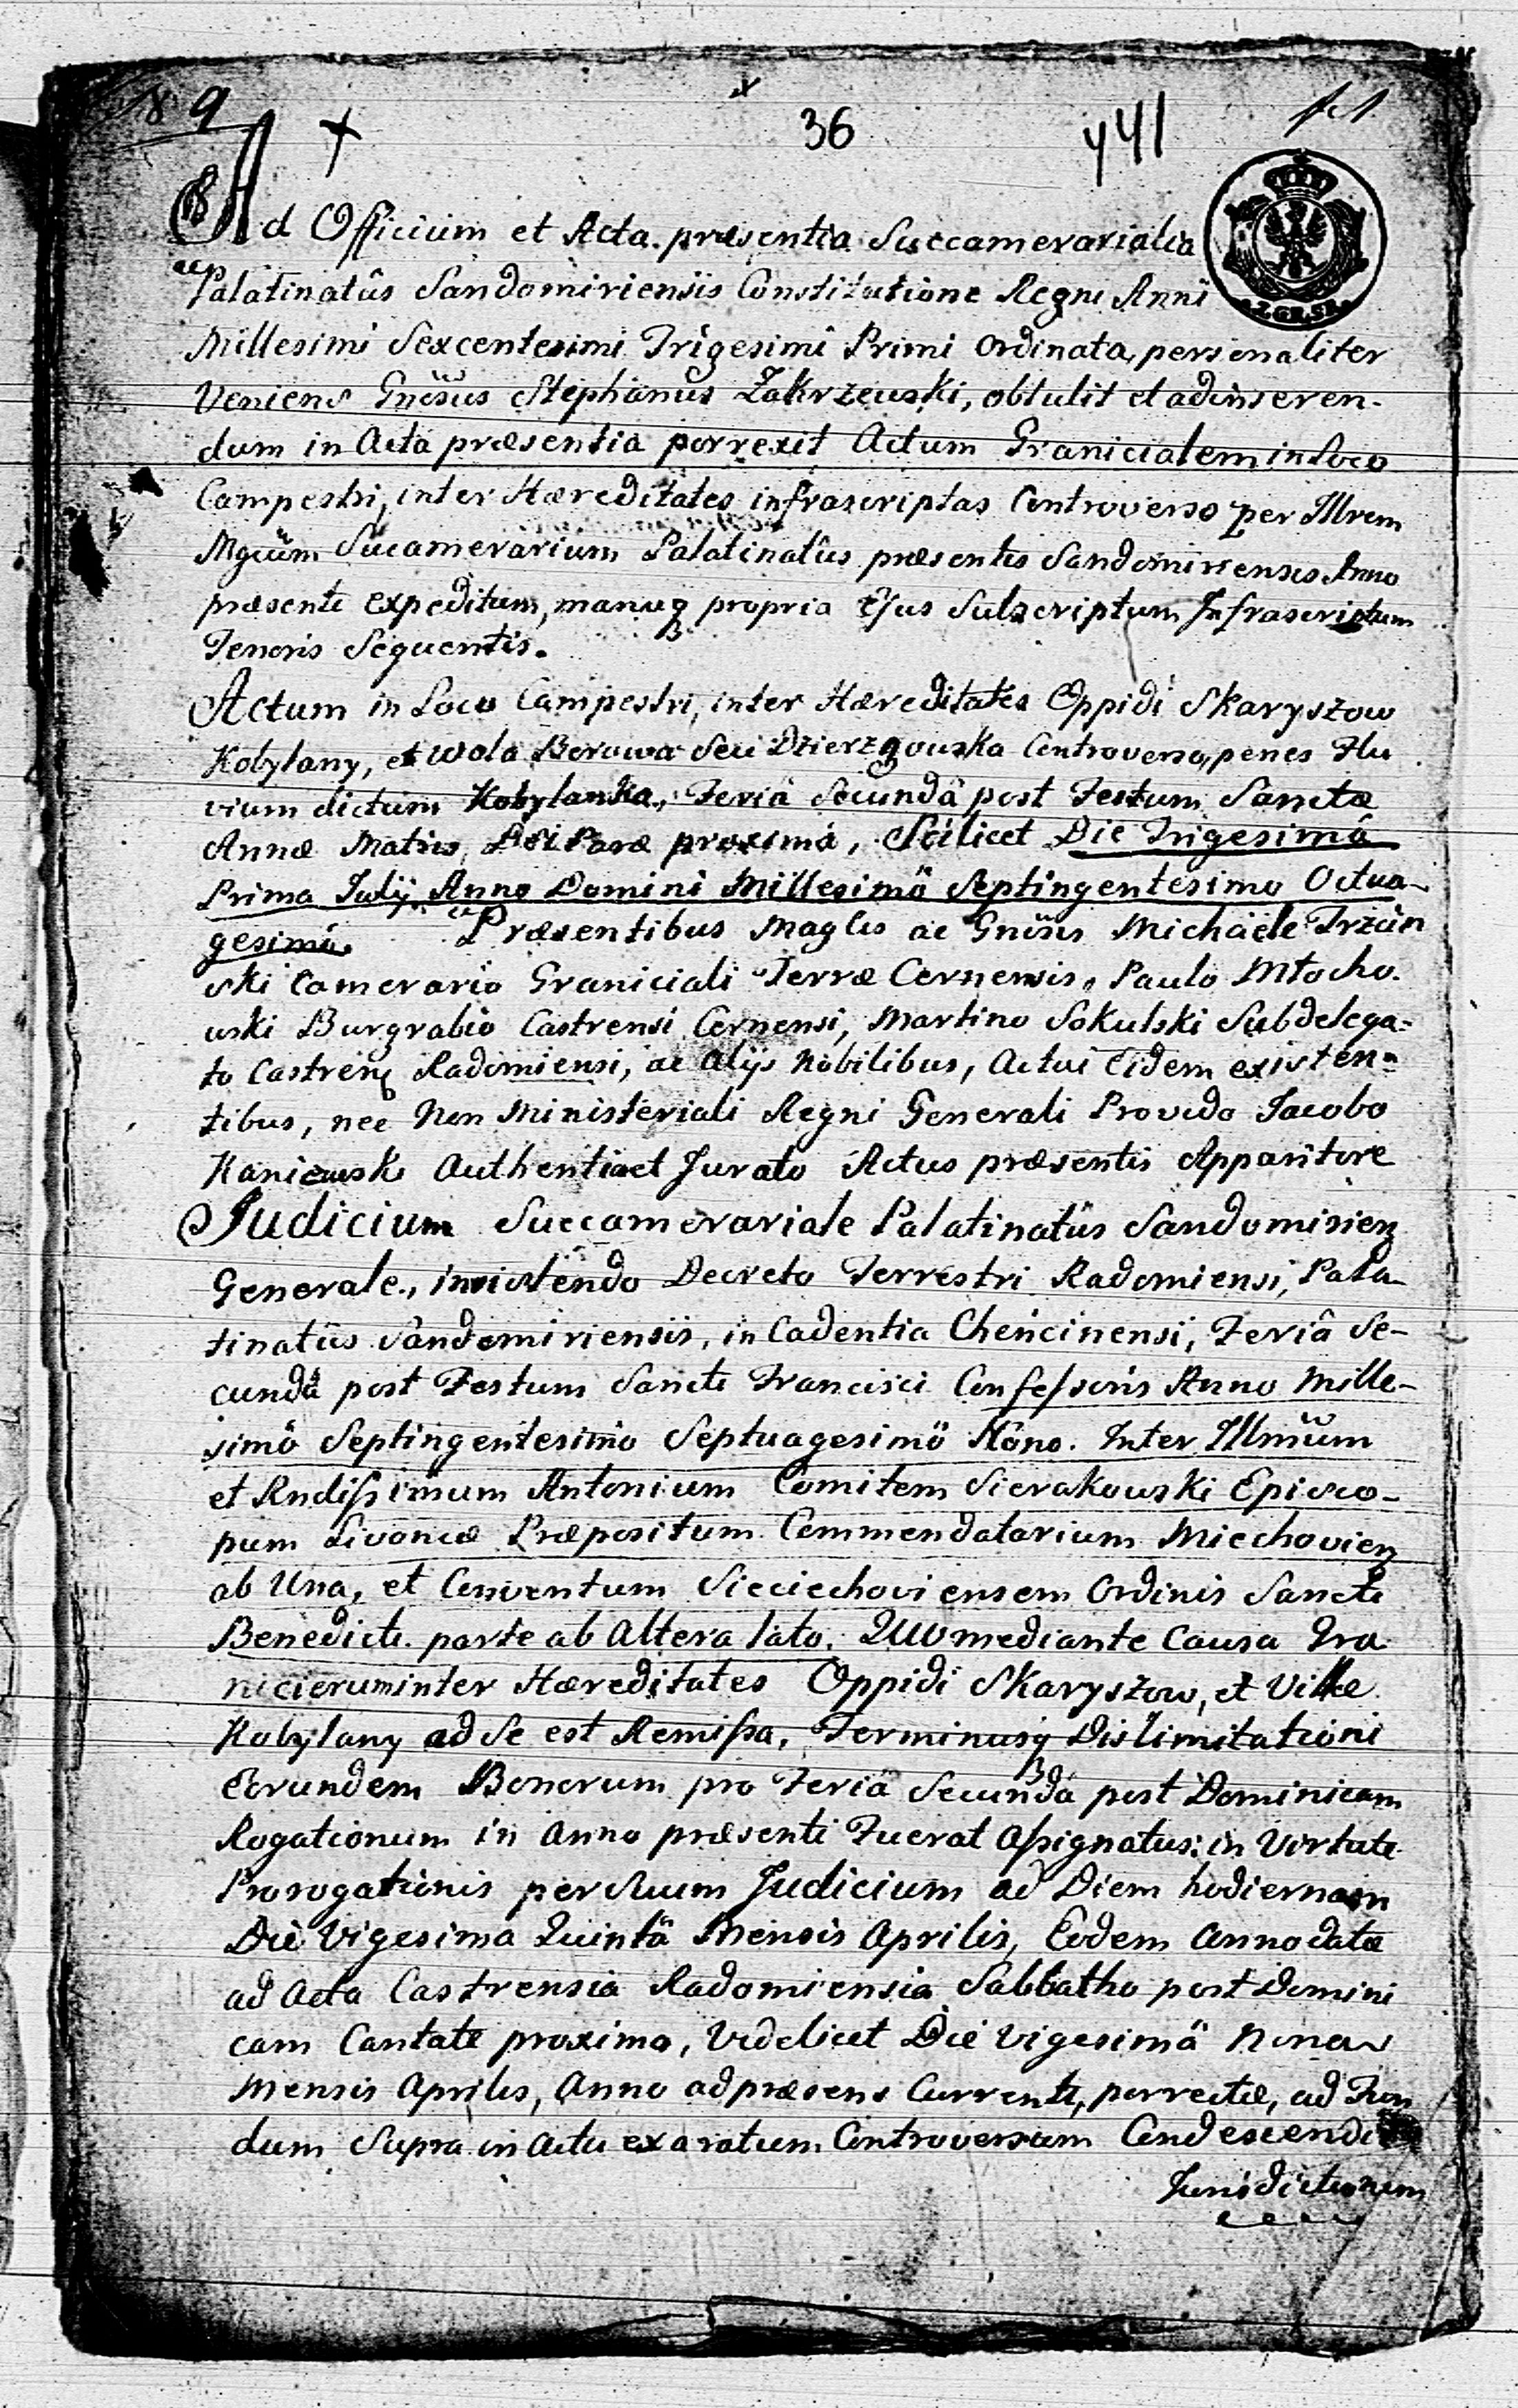 N 9
36
441
fol
Z.GR.SR.
Ad Officium et Acta præsentia Succamerarialia
Palatinatûs Sandomiriensis Constitutione Regni Anni
Millesimi Sexcentesimi Trigesimi Primi Ordinata, personaliter
Veniens Gnosus Stephanus Zakrzewski, obtulit et adinseren-
dum in Acta præsentia porrexit Actum Granicialem in Loco
Campestri, inter Hæreditates infrascriptas Controverso per Illrem
Mgcum Sucamerarium Palatinatûs præsentis Sandomiriensis Anno
præsenti expeditum, manuq propria Ejus Subscriptum Infrascriptum
Tenoris Sequentis.
Actum in Loco Campestri, inter Hæreditates Oppidi Skaryszow
Kobylany, et Wola Borowa Seu Dzierzgowska Controverso, penes Flu
vium dictum Kobylanka, Feriâ Secundâ post Festum Sanctæ
Annæ Matris Dei Paræ proximâ, Scilicet Die Trigesimâ
Prima Julij Anno Domini Millesimö Septingentesimo Octua-
gesimö Præsentibus Magcis ac Gnosis Michäele Trzcin
ski Camerario Graniciali Terræ Cernensis, Paulo Młocho-
wski Burgrabio Castrensi Cernensi, Martino Sokulski Subdelega=
to Castren Radomiensi, ac Alijs Nobilibus, Actui Eidem existen=
tibus, nec Non Ministeriali Regni Generali Provido Jacobo
Kaniewski Authentico et Jurato Actus præsentis Apparitore
Judicium Succamerariale Palatinatûs Sandomirien
Generale, insistendo Decreto Terrestri Radomiensi, Pala-
tinatûs Sandomiriensis, in Cadentia Chencinensi, Feriâ Se-
cundâ post Festum Sancti Francisci Confessoris Anno Mille-
simö Septingentesimo Septuagesimö Nono. Inter Illmum
et Rndissimum Antonium Comitem Sierakowski Episco-
pum Livoniæ Præpositum Commendatarium Miechovien
ab Una, et Conventum Sieciechoviensem Ordinis Sancti
Benedicti parte ab Altera lato. Quo mediante Causa Gra
nicierum inter Hæreditates Oppidi Skaryszow, et Villæ
Kobylany ad Se est Remissa, Terminusq Dislimitationi
Eorundem Bonorum pro Feriä Secundâ post Dominicam
Rogationum in Anno præsenti Fuerat Assignatus: in Virtute
Prorogationis per Suum Judicium ad Diem hodiernam
Die Vigesima Quintä Mensis Aprilis, Eodem Anno datæ
ad Acta Castrensia Radomiensia Sabbatho post Domini
cam Cantate proximo, Videlicet Die Vigesimä Nona
Mensis Aprilis, Anno ad præsens Currenti, porrectæ, ad Fun
dum Supra in Actu exaratum Controversum Condescendit
Jurisdictionem